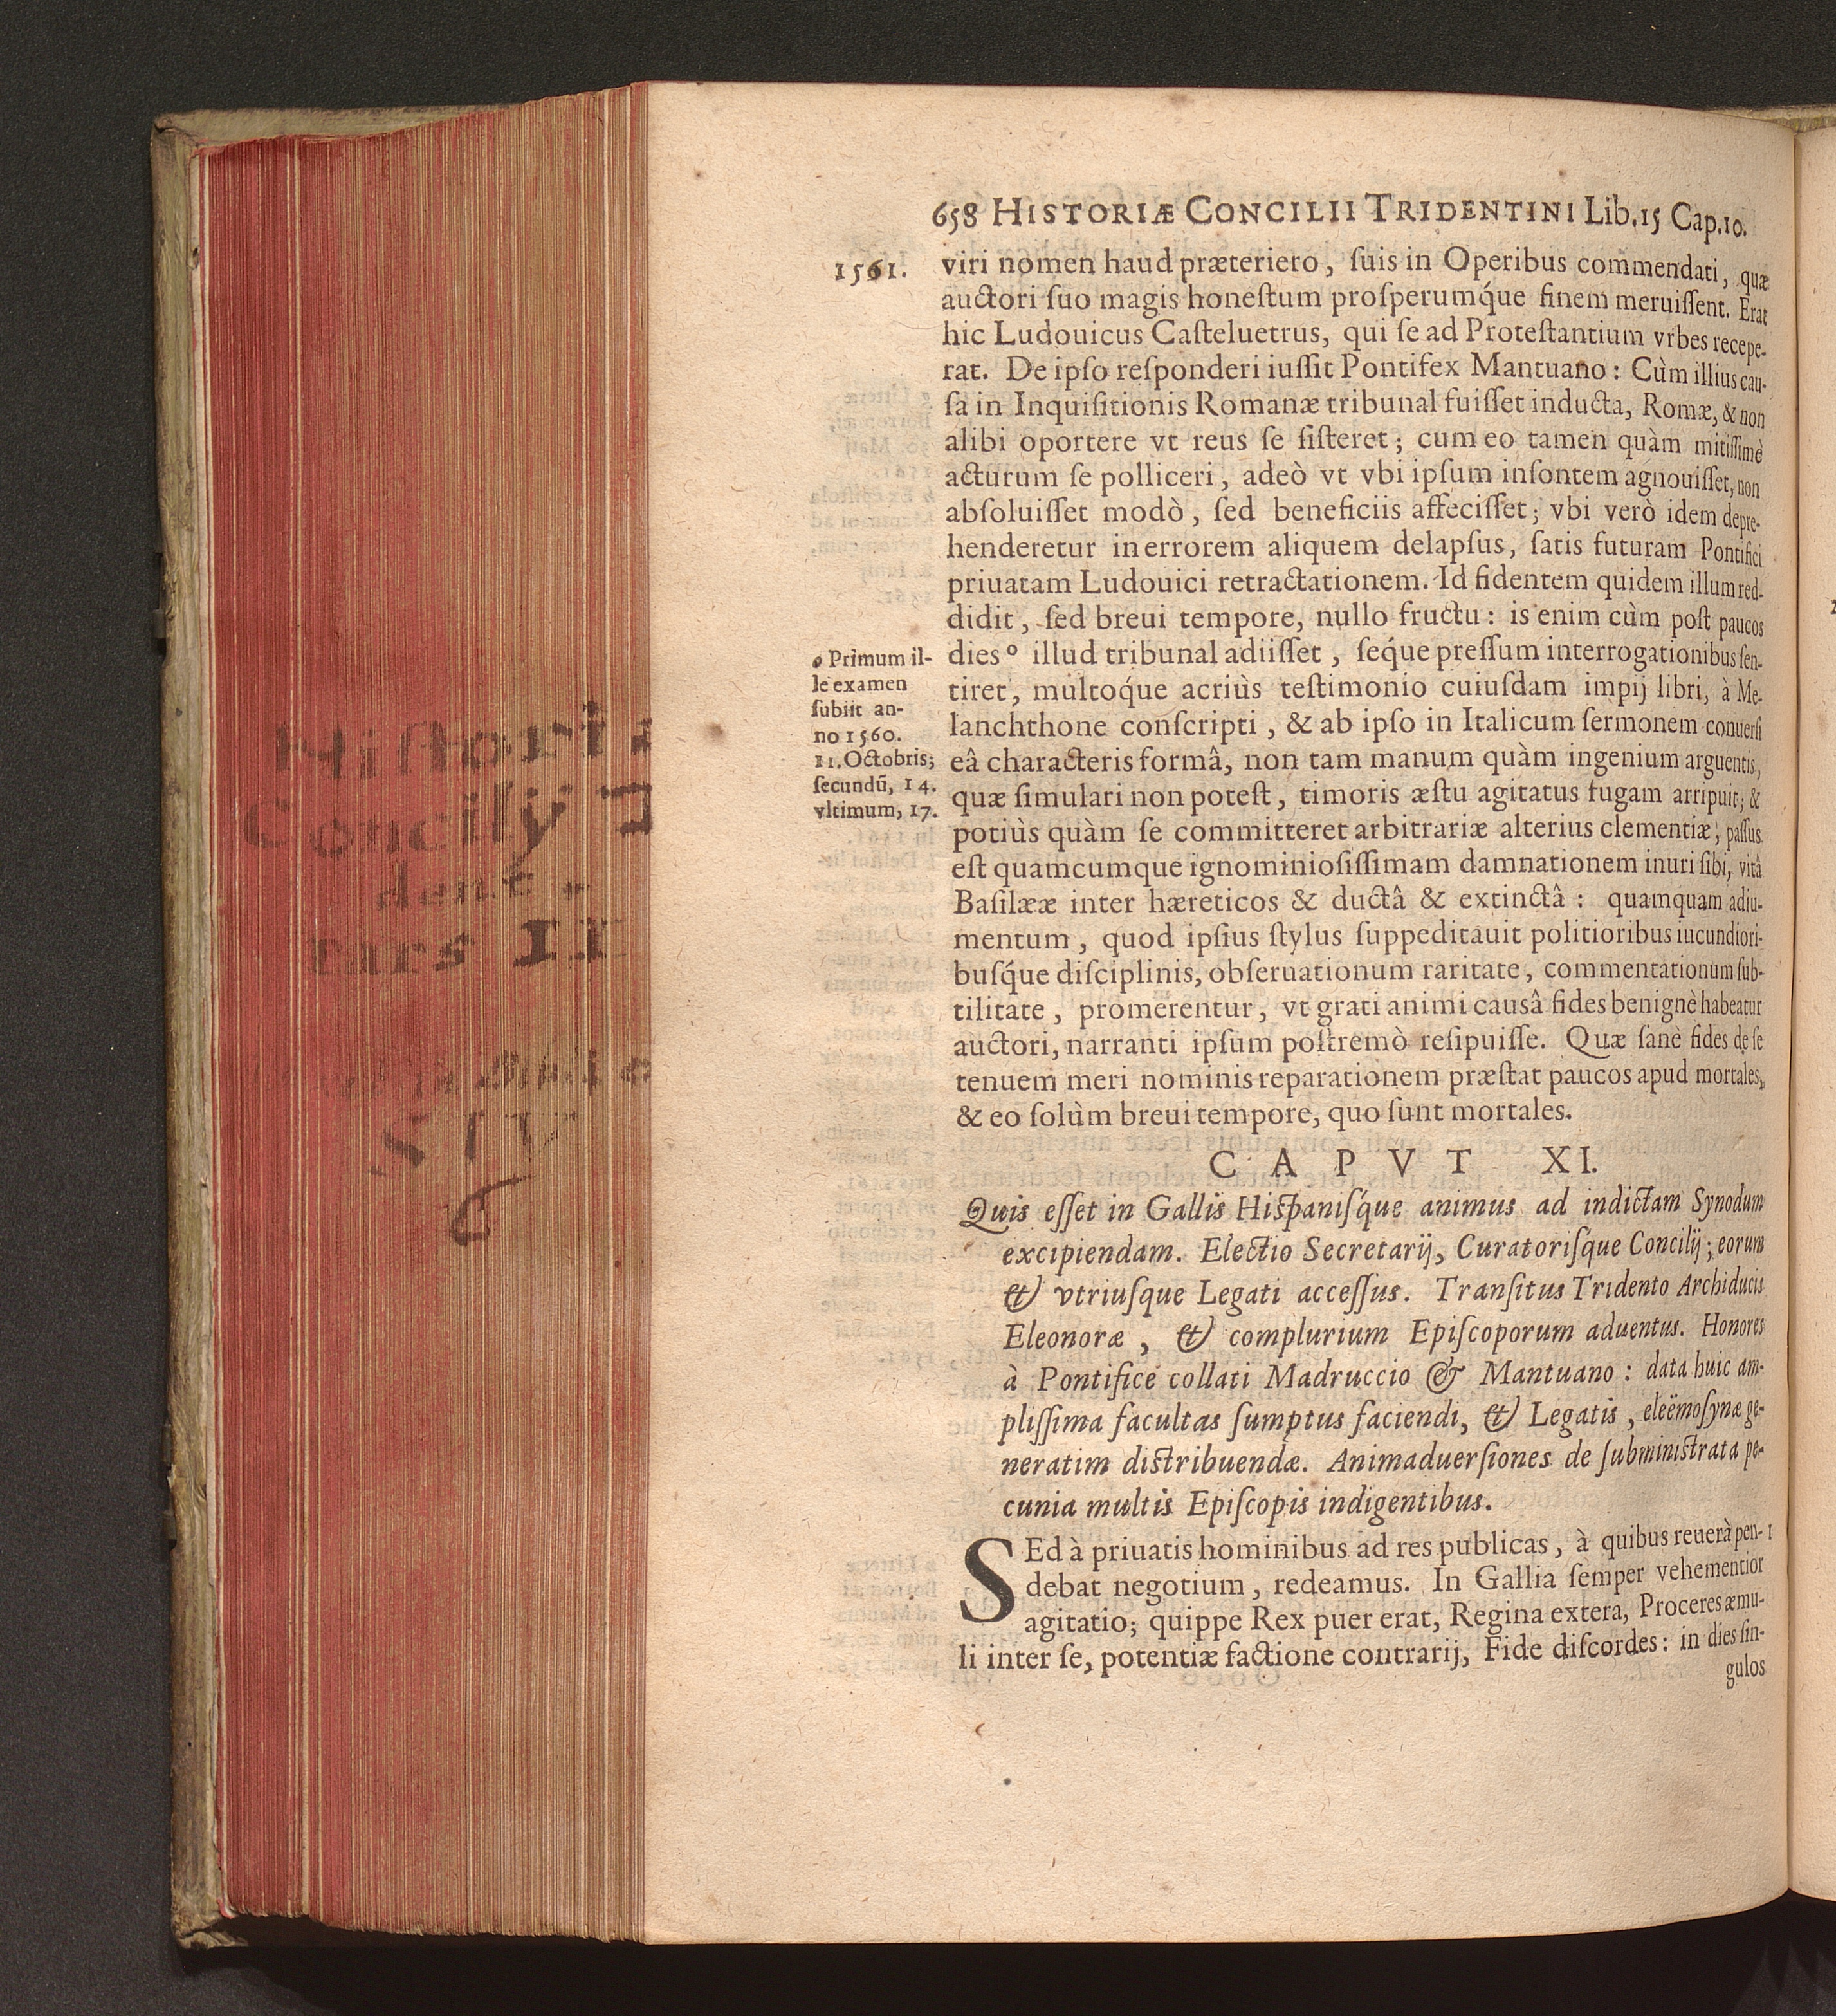 658 HISTORIÆ CONCILII TRIDENTINI Lib.15 Cap.10.
1561.
viri nomen haud præteriero, ſuis in Operibus commendati, quæ
auctori ſuo magis honeſtum proſperumq́ue finem meruiſſent. Erat
hic Ludouicus Caſteluetrus, qui ſe ad Proteſtantium vrbes recepe-
rat. De ipſo reſponderi iuſſit Pontifex Mantuano: Cùm illius cau-
ſa in Inquiſitionis Romanæ tribunal fuiſſet inducta, Romæ, & non
alibi oportere vt reus ſe ſiſteret; cum eo tamen quàm mitiſſimè
acturum ſe polliceri, adeò vt vbi ipſum inſontem agnouiſſet, non
abſoluiſſet modò, ſed beneficiis affeciſſet; vbi verò idem depre-
henderetur in errorem aliquem delapſus, ſatis futuram Pontifici
priuatam Ludouici retractationem. Id fidentem quidem illum red-
didit, ſed breui tempore, nullo fructu: is enim cùm poſt paucos
dies º illud tribunal adiiſſet, ſeq́ue preſſum interrogationibus ſen-
tiret, multoq́ue acriùs teſtimonio cuiuſdam impij libri, à Me-
lanchthone conſcripti, & ab ipſo in Italicum ſermonem conuerſi
eâ characteris formâ, non tam manum quàm ingenium arguentis,
quæ ſimulari non poteſt, timoris æſtu agitatus fugam arripuit; &
potiùs quàm ſe committeret arbitrariæ alterius clementiæ, paſſus
eſt quamcumque ignominioſiſſimam damnationem inuri ſibi, vitâ
Baſilææ inter hæreticos & ductâ & extinctâ: quamquam adiu-
mentum, quod ipſius ſtylus ſuppeditauit politioribus iucundiori-
buſq́ue diſciplinis, obſeruationum raritate, commentationum ſub-
tilitate, promerentur, vt grati animi causâ fides benignè habeatur
auctori, narranti ipſum poſtremò reſipuiſſe. Quæ ſanè fides de ſe
tenuem meri nominis reparationem præſtat paucos apud mortales,
& eo ſolùm breui tempore, quo ſunt mortales.
o Primum il-
le examen
ſubiit an-
no 1560.
11. Octobris;
ſecundū, 14.
vltimum, 17.
CAPVT XI.
Quis eſſet in Gallis Hiſpaniſq́ue animus ad indictam Synodum
excipiendam. Electio Secretarij, Curatoriſque Concilij; eorum
& vtriuſque Legati acceſſus. Tranſitus Tridento Archiducis
Eleonoræ, & complurium Epiſcoporum aduentus. Honores
à Pontifice collati Madruccio & Mantuano: data huic am-
pliſſima facultas ſumptus faciendi, & Legatis, eleëmoſynæ ge-
neratim diſtribuendæ. Animaduerſiones de ſubminiſtrata pe-
cunia multis Epiſcopis indigentibus.
SEd à priuatis hominibus ad res publicas, à quibus reuerà pen- 1
debat negotium, redeamus. In Gallia ſemper vehementior
agitatio; quippe Rex puer erat, Regina extera, Proceres æmu-
li inter ſe, potentiæ factione contrarij, Fide diſcordes: in dies ſin-
gulos
Hiſtori
Concilij
dent.
Pars II